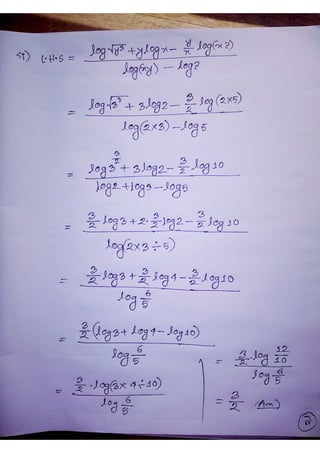 ST) L.H.S = (log√y³ + y log x − y/x log(xz)) / (log(xy) − log z)
= (log√3³ + 3log2 − 3/2 log(2×5)) / (log(2×3) − log5)
= (log3^(3/2) + 3log2 − 3/2 log10) / (log2 + log3 − log5)
= (3/2 log3 + 2·3/2 log2 − 3/2 log10) / log(2×3÷5)
= (3/2 log3 + 3/2 log4 − 3/2 log10) / log 6/5
= 3/2 (log3 + log4 − log10) / log 6/5
= 3/2 · log(3×4÷10) / log 6/5
= 3/2 · log 12/10 / log 6/5
= 3/2 (Am)